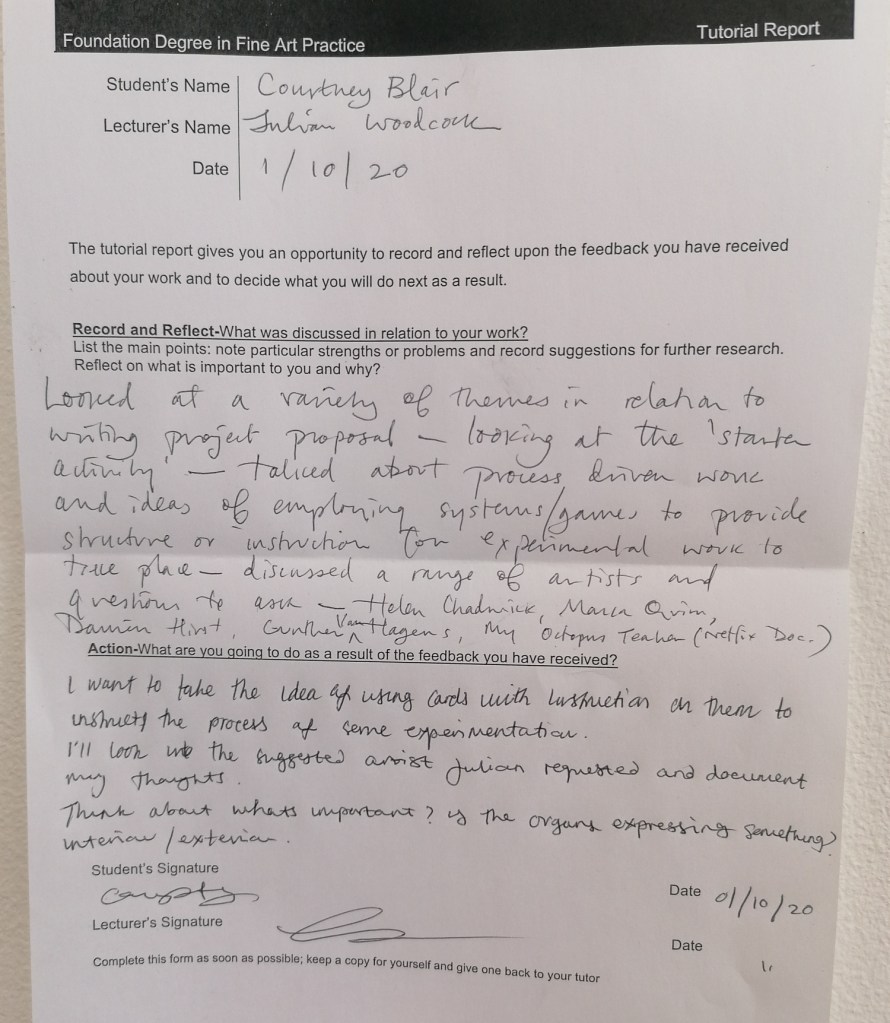 Foundation Degree in Fine Art Practice Tutorial Report
Student's Name Courtney Blair
Lecturer's Name Julian Woodcock
Date 1/10/20
The tutorial report gives you an opportunity to record and reflect upon the feedback you have received
about your work and to decide what you will do next as a result.
Record and Reflect-What was discussed in relation to your work?
List the main points: note particular strengths or problems and record suggestions for further research.
Reflect on what is important to you and why?
Looked at a variety of themes in relation to
writing project proposal – looking at the 'starter
activity' – talked about process driven work
and ideas of employing systems/games to provide
structure or instruction for experimental work to
take place – discussed a range of artists and
questions to ask – Helen Chadwick, Marc Quinn,
Damien Hirst, Gunther Von Hagens, My Octopus Teacher (Netflix Doc.)
Action-What are you going to do as a result of the feedback you have received?
I want to take the idea of using cards with instruction on them to
the process of some experimentation.
I'll look into the suggested artist Julian requested and document
my thoughts.
Think about whats important? is the organs expressing something?
interior/exterior.
Student's Signature
Date 01/10/20
Lecturer's Signature
Date "
Complete this form as soon as possible; keep a copy for yourself and give one back to your tutor